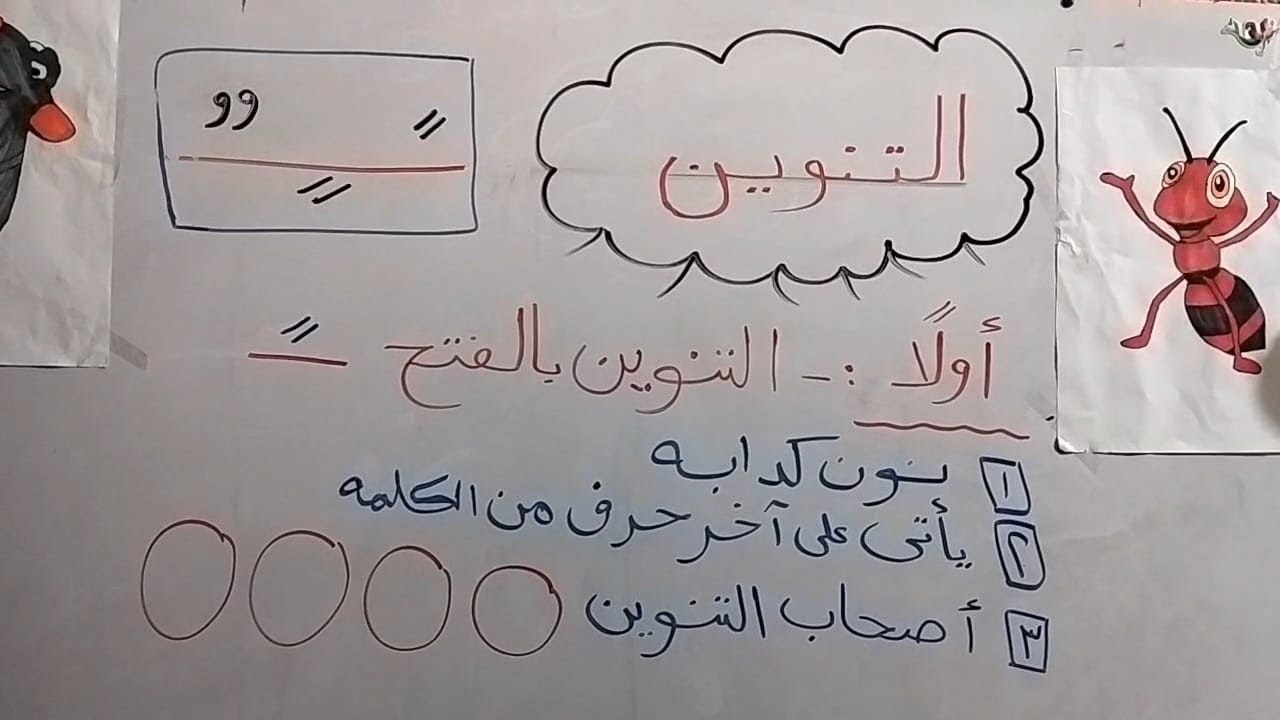 التنوين
أولًا :- التنوين بالفتح ـً
١ نون كدابه
٢ يأتى على آخر حرف من الكلمه
٣ أصحاب التنوين